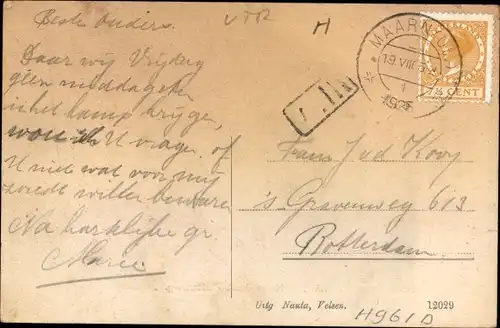 Beste Ouders.
Daar wij Vrijdag
geen middageten
in het kamp krijge,
wou ik U vrage of
U niet wat voor mij
zoudt wille beware
Na harklijke gr.
Marie
VTR
H
MAARN
19 VIII
1
192
7½ CENT
Fam J v d Kooy
's Gravenweg 613
Rotterdam
Uitg Nauta, Velsen.
12029
H961D